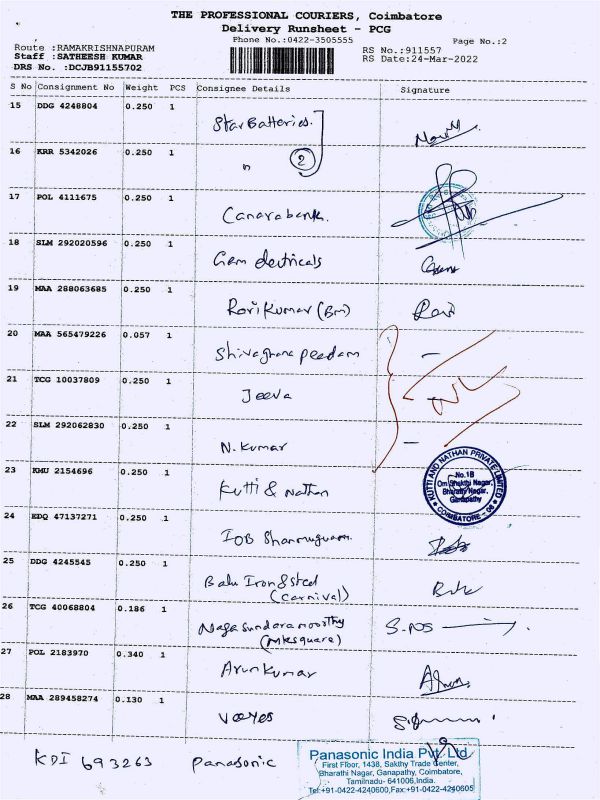 THE PROFESSIONAL COURIERS, Coimbatore
Delivery Runsheet - PCG
Phone No.:0422-3505555
Page No.:2
Route :RAMAKRISHNAPURAM
RS No.:911557
Staff :SATHEESH KUMAR
RS Date:24-Mar-2022
DRS No. :DCJB91155702
S No Consignment No Weight PCS Consignee Details Signature
15 DDG 4248804 0.250 1
Star Batteries.
16 KRR 5342026 0.250 1
" 2
17 POL 4111675 0.250 1
Canara bank.
18 SLM 292020596 0.250 1
Gem electricals
19 MAA 288063685 0.250 1
Ravi Kumar (Bm) Ravi
20 MAA 565479226 0.057 1
Shivaghana peedam
21 TCG 10037809 0.250 1
Jeeva
22 SLM 292062830 0.250 1
N. Kumar
23 KMU 2154696 0.250 1
Kutti & Nathan
KUTTI AND NATHAN PRIVATE LIMITED
No.1B
Om Shakthi Nagar,
Bharathi Nagar,
Ganapathy
COIMBATORE - 06
24 EDQ 47137271 0.250 1
IOB Shanmugam.
25 DDG 4245545 0.250 1
Balu Iron & steel
(Carnival)
26 TCG 40068804 0.186 1
Nagasundaramoorthy
(Mksquare)
27 POL 2183970 0.340 1
Arunkumar
28 MAA 289458274 0.130 1
KDI 693263 Panasonic
Panasonic India Pvt. Ltd
First Floor, 1438, Sakthy Trade Center,
Bharathi Nagar, Ganapathy, Coimbatore,
Tamilnadu- 641006,India.
Tel:+91-0422-4240600,Fax:+91-0422-4240605